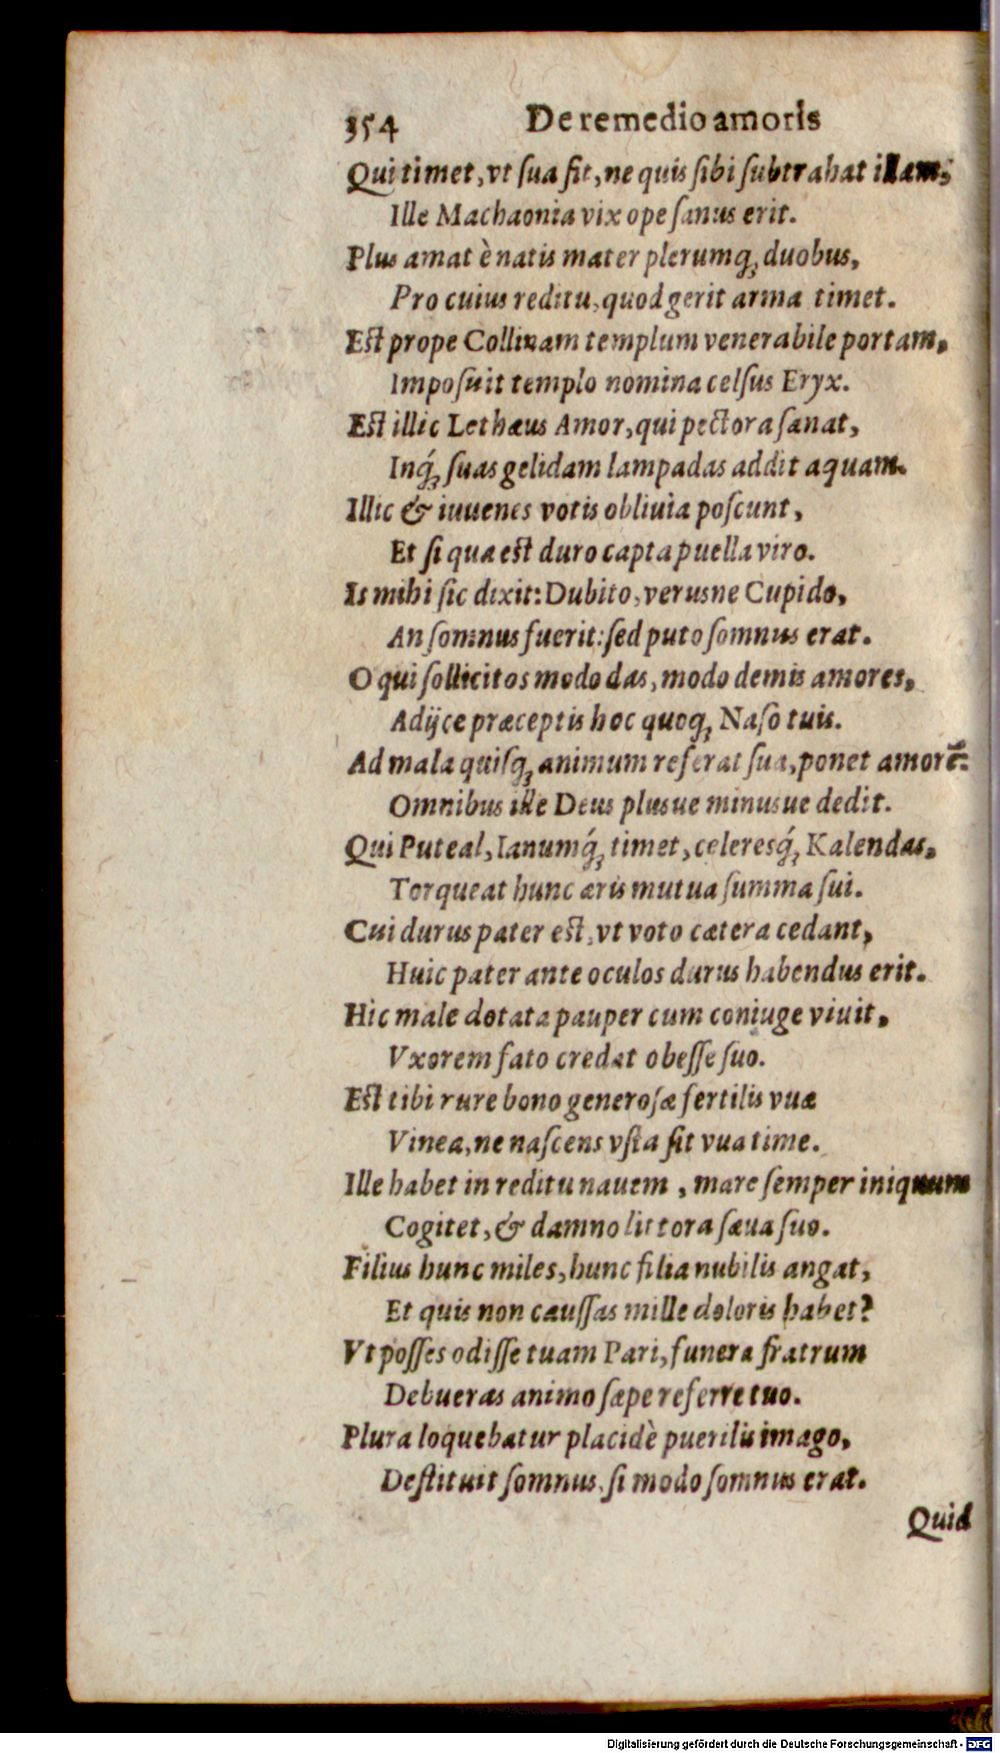 354 De remedio amoris
Qui timet, vt sua sit, ne quis sibi subtrahat illam;
Ille Machaonia vix ope sanus erit.
Plus amat è natis mater plerumq; duobus,
Pro cuius reditu, quod gerit arma timet.
Est prope Collinam templum venerabile portam,
Imposuit templo nomina celsus Eryx.
Est illic Lethæus Amor, qui pectora sanat,
Inq́; suas gelidam lampadas addit aquam.
Illic & iuuenes votis obliuia poscunt,
Et si qua est duro capta puella viro.
Is mihi sic dixit: Dubito, verusne Cupido,
An somnus fuerit: sed puto somnus erat.
O qui sollicitos modo das, modo demis amores,
Adijce præceptis hoc quoq; Naso tuis.
Ad mala quisq; animum referat sua, ponet amorē:
Omnibus ille Deus plusue minusue dedit.
Qui Puteal, Ianumq́; timet, celeresq́; Kalendas,
Torqueat hunc æris mutua summa sui.
Cui durus pater est, vt voto cætera cedant,
Huic pater ante oculos durus habendus erit.
Hic male dotata pauper cum coniuge viuit,
Vxorem fato credat obesse suo.
Est tibi rure bono generosæ fertilis vuæ
Vinea, ne nascens vsta sit vua time.
Ille habet in reditu nauem, mare semper iniquum
Cogitet, & damno littora sæua suo.
Filius hunc miles, hunc filia nubilis angat,
Et quis non caussas mille doloris habet?
Vt posses odisse tuam Pari, funera fratrum
Debueras animo sæpe referre tuo.
Plura loquebatur placidè puerilis imago,
Destituit somnus, si modo somnus erat.
Quid
Digitalisierung gefördert durch die Deutsche Forschungsgemeinschaft - DFG